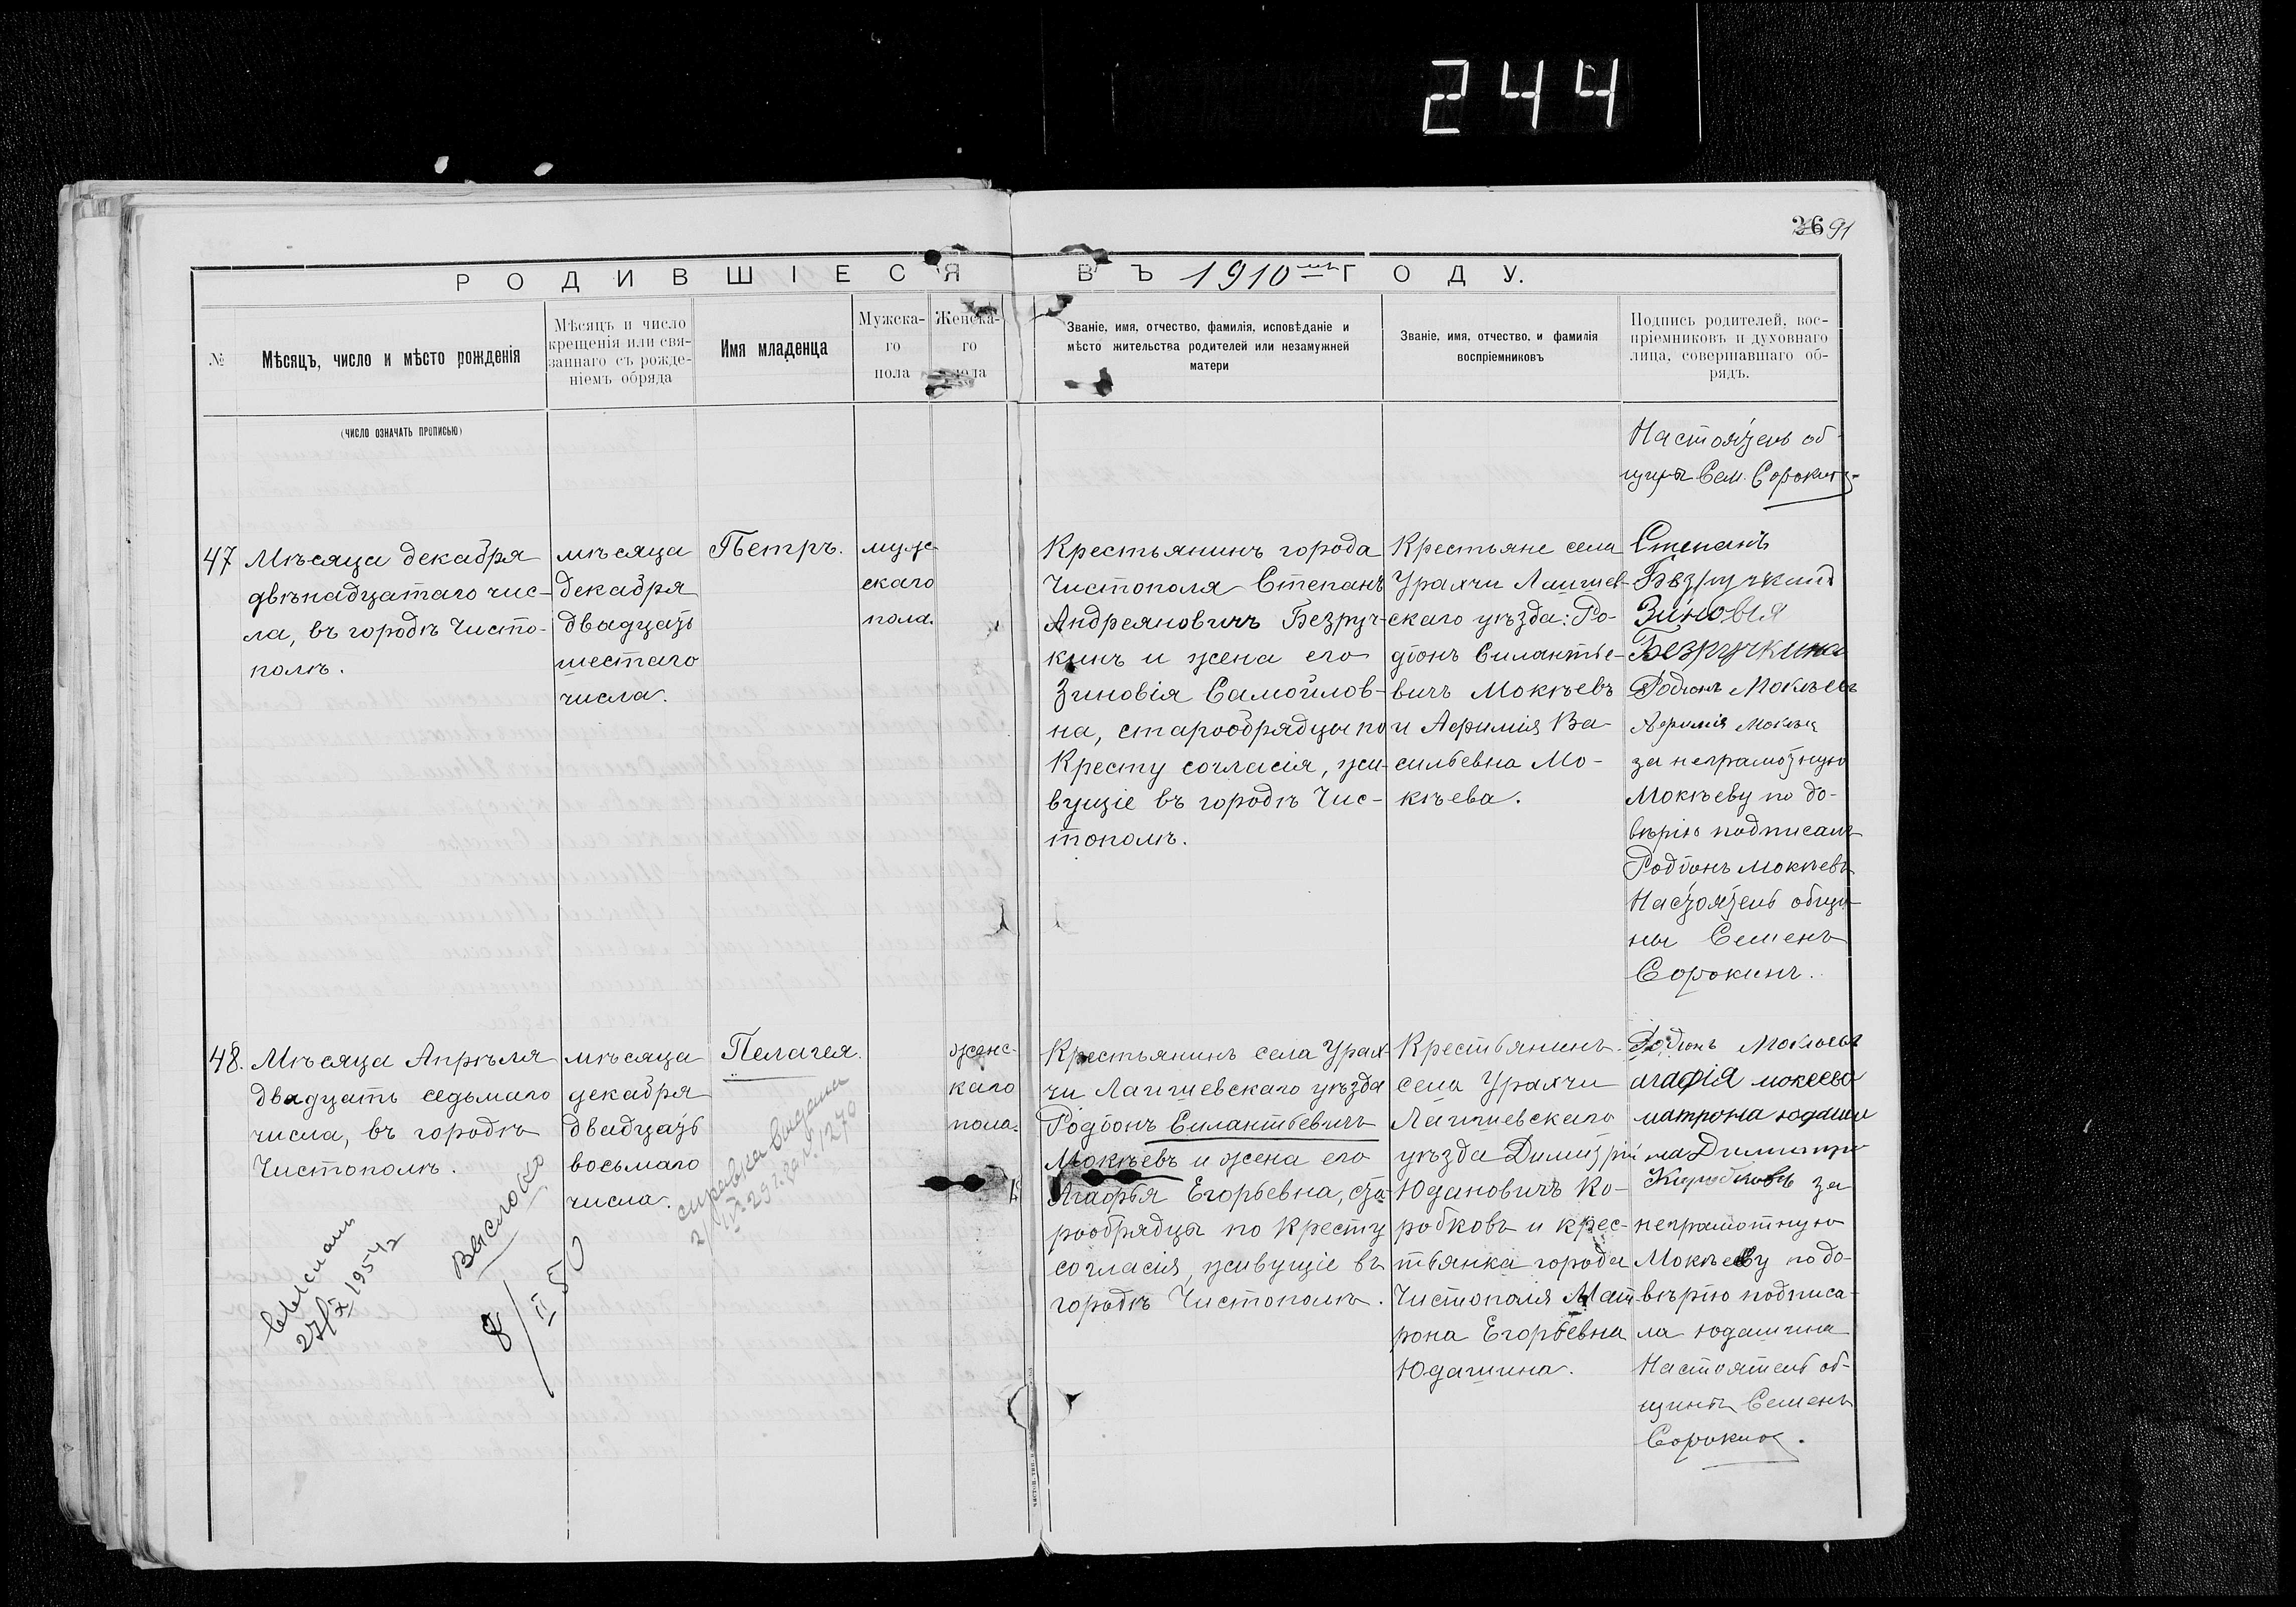 244
26 91
РОДИВШІЕСЯ ВЪ 1910 мъ ГОДУ.
№
Мѣсяцъ, число и мѣсто рожденія
Мѣсяцъ и число
крещенія или свя-
заннаго съ рожде-
ніемъ обряда
Имя младенца
Мужска-
го
пола
Женска-
го
пола
Званіе, имя, отчество, фамилія, исповѣданіе и
мѣсто жительства родителей или незамужней
матери
Званіе, имя, отчество, и фамилія
воспріемниковъ
Подпись родителей, вос-
пріемниковъ и духовнаго
лица, совершавшаго об-
рядъ.
(ЧИСЛО ОЗНАЧАТЬ ПРОПИСЬЮ)
Настоятель об-
щины Сем. Сорокинъ
47
Мѣсяца декабря
двѣнадцатаго чис-
ла, въ городѣ Чисто-
полѣ.
мѣсяца
декабря
двадцать
шестаго
числа.
Петръ.
муж-
скаго
пола.
Крестьянинъ города
Чистополя Степанъ
Андреяновичъ Безруч-
кинъ и жена его
Зиновія Самойлов-
на, старообрядцы по
Кресту согласія, жи-
вущіе въ городѣ Чис-
тополѣ.
Крестьяне села
Урахчи Лаишев-
скаго уѣзда: Ро-
діонъ Силантье-
вичъ Мокѣевъ
и Афимія Ва-
сильевна Мо-
кѣева.
Степанъ
Безручкинъ
Зиновія
Безручкина
Родіонъ Мокѣевъ
Афимія
за неграмотную
Мокѣеву по до-
вѣрію подписалъ
Родіонъ Мокѣевъ
Настоятель общи-
ны Семенъ
Сорокинъ.
48.
Мѣсяца Апрѣля
двадцать седьмаго
числа, въ городѣ
Чистополѣ.
мѣсяца
декабря
двадцать
восьмаго
числа.
Пелагея.
женс-
каго
пола.
Крестьянинъ села Урах-
чи Лаишевскаго уѣзда
Родіонъ Силантьевичъ
Мокѣевъ и жена его
Агафья Егорьевна, ста-
рообрядцы по Кресту
согласія, живущіе въ
городѣ Чистополѣ.
Крестьянинъ
села Урахчи
Лаишевскаго
уѣзда Димитрій
Юдановичъ Ко-
робковъ и крес-
тьянка города
Чистополя Мат-
рона Егорьевна
Юдашина.
Родіонъ Мокѣевъ
агафія мокеева
матрона юдаши
на Димитри
Коробковъ за
неграмотную
Мокѣеву по до-
вѣрію подписа-
ла Юдашина
Настоятель об-
щины Семенъ
Сорокинъ.
справка выдана
Выслано
8/II 50
27/X 1954